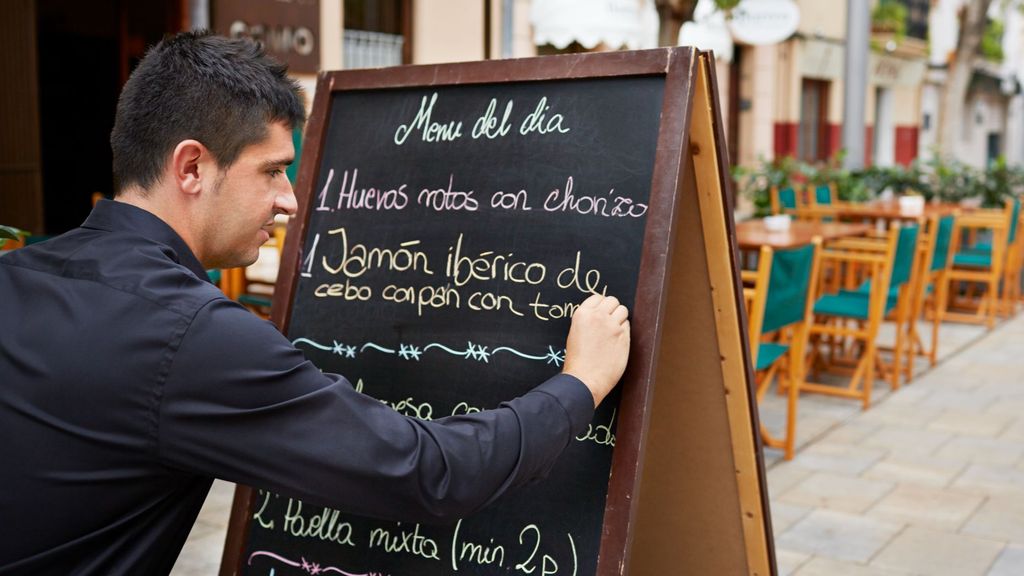 Menu del dia
1. Huevos rotos con chorizo
1 Jamón ibérico de
cebo con pan con tom
2. Paella mixta (min. 2p)